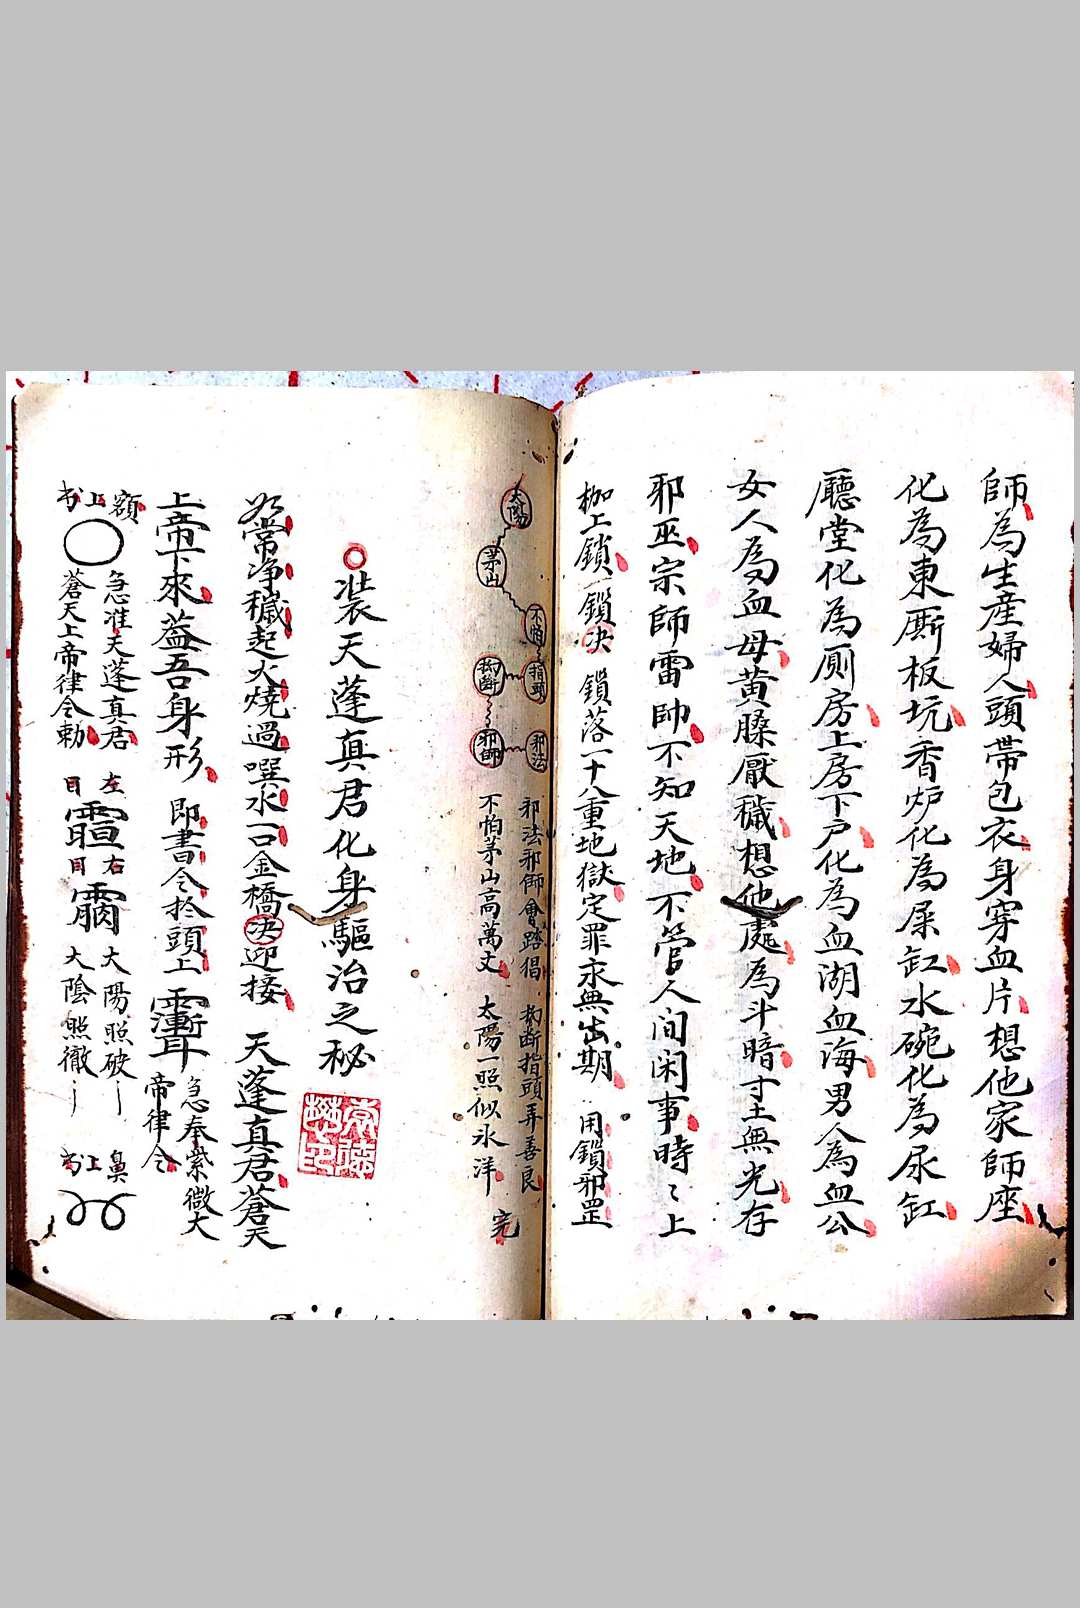 師為生產婦人頭帶包衣身穿血片想他家師座
化為東廝板坑香炉化為屎缸水碗化為尿缸
廳堂化為厠房上房下户化為血湖血海男人為血公
女人為血母黄臊厭穢想他處為斗暗寸土無光存
邪巫宗師雷帥不知天地不管人间闲事時々上
枷上鎖一鎖决 鎖落一十八重地獄定罪永無出期 用鎖邪罡
太陽
茅山
不怕
指頭
拗断
邪法
邪師
邪法邪師會踏猖 拗断指頭弄善良
不怕茅山高萬丈 太陽一照似氷洋 完
装天蓬真君化身驅治之秘
常净穢起火燒過噀水一口金橋决迎接 天蓬真君蒼天
上帝下來葢吾身形 即書令於頭上
急奉紫微大
帝律令
額上书
急准天蓬真君
蒼天上帝律令勅
左目
右目
大陽照破
大陰照徹
鼻上书